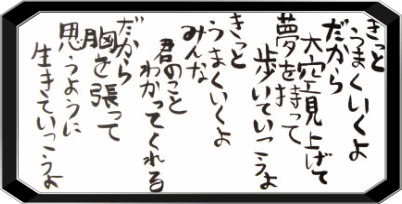 きっと
うまくいくよ
だから
大空見上げて
夢を持って
歩いていこうよ
きっと
うまくいくよ
みんな
君のこと
わかってくれる
だから
胸を張って
思うように
生きていこうよ